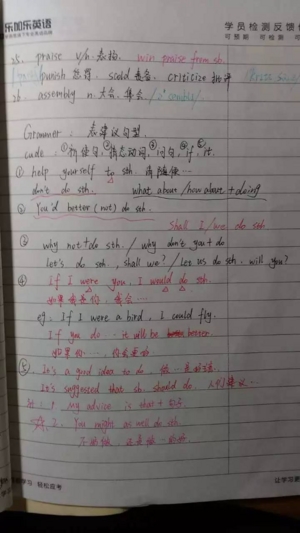 乐加乐英语
学员检测反馈
可预期 可检测
25. praise v/n. 表扬 win praise from sb.
punish 惩罚 scold 责备 criticize 批评
26. assembly n. 大会, 集会
Grammer: 表建议句型.
① 祈使句, ② 情态动词, 问句, if, It.
① help yourself to sth. 请随便…
don't do sth. what about/how about + doing
② You'd better (not) do sth.
Shall I/we do sth
③ why not + do sth. / why don't you + do
Let's do sth, shall we? / Let us do sth. will you?
④ If I were you, I would do sth.
如果我是你, 我会…
eg. If I were a bird, I could fly.
If you do … it will be better
如果你…, 将会更好
⑤ It's a good idea to do 做…是好主意.
It's suggested that sb. should do. 人们建议…
1. My advice is that + 句子
2. You might as well do sth.